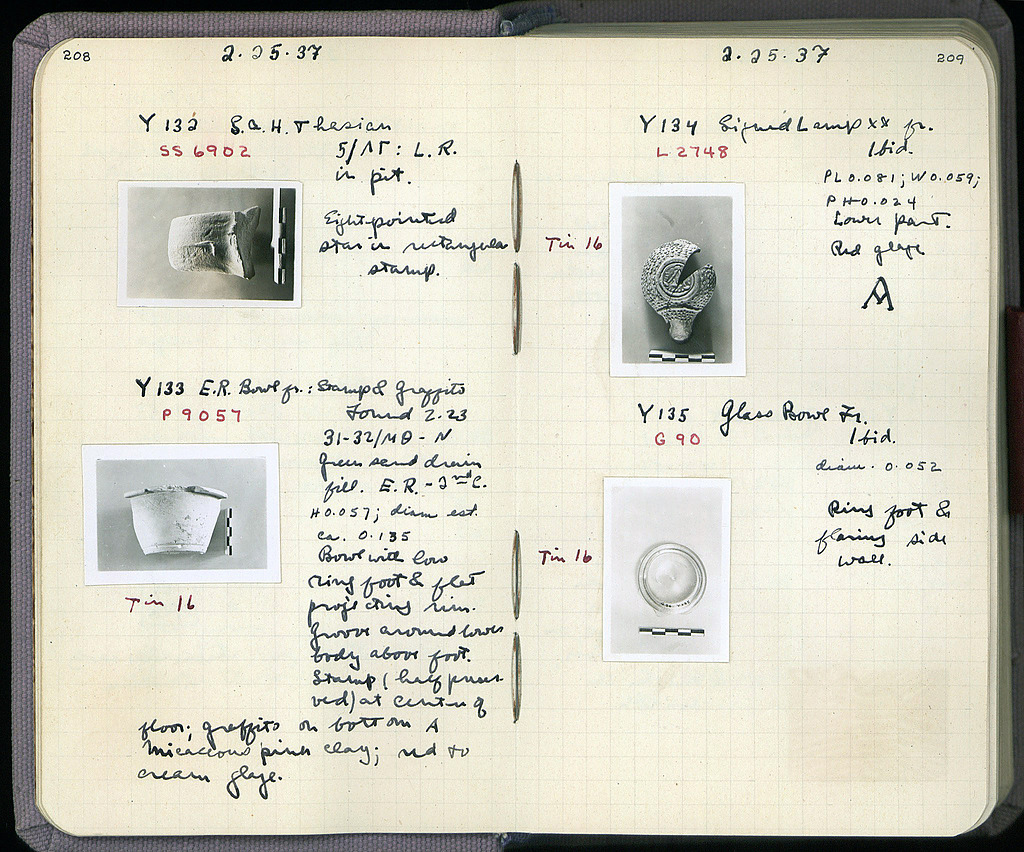 208
2.25.37
Y 132 S.A.H. Thasian
SS 6902
5/ΛΓ: L.R.
in pit.
Eight-pointed
star in rectangular
stamp.
Y 133 E.R. Bowl fr.: Stamp & Graffito
P 9057
Found 2.23
31-32/ΜΘ-Ν
Green sand drain
fill. E.R. - 2nd C.
H 0.057; diam est.
ca. 0.135
Bowl with low
ring foot & flat
projecting rim.
Groove around lower
body above foot.
Stamp (half preser-
ved) at center of
floor; graffito on bottom A
Micaceous pink clay; red to
cream glaze.
Tin 16
209
2.25.37
Y 134 Signed Lamp XX fr.
L 2748
Ibid.
PL 0.081; W 0.059;
PH 0.024
Lower part.
Red glaze
A
Tin 16
Y 135 Glass Bowl Fr.
G 90
Ibid.
diam. 0.052
Ring foot &
flaring side
wall.
Tin 16